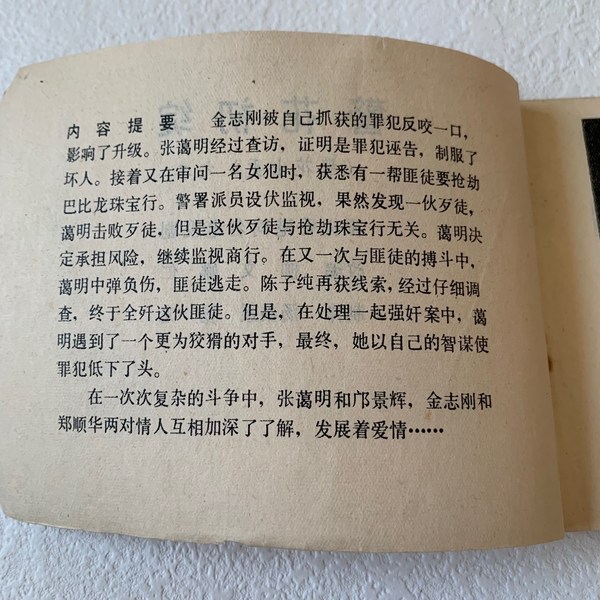 内容提要　金志刚被自己抓获的罪犯反咬一口，
影响了升级。张蔼明经过查访，证明是罪犯诬告，制服了
坏人。接着又在审问一名女犯时，获悉有一帮匪徒要抢劫
巴比龙珠宝行。警署派员设伏监视，果然发现一伙歹徒，
蔼明击败歹徒，但是这伙歹徒与抢劫珠宝行无关。蔼明决
定承担风险，继续监视商行。在又一次与匪徒的搏斗中，
蔼明中弹负伤，匪徒逃走。陈子纯再获线索，经过仔细调
查，终于全歼这伙匪徒。但是，在处理一起强奸案中，蔼
明遇到了一个更为狡猾的对手，最终，她以自己的智谋使
罪犯低下了头。
在一次次复杂的斗争中，张蔼明和邝景辉，金志刚和
郑顺华两对情人互相加深了了解，发展着爱情……